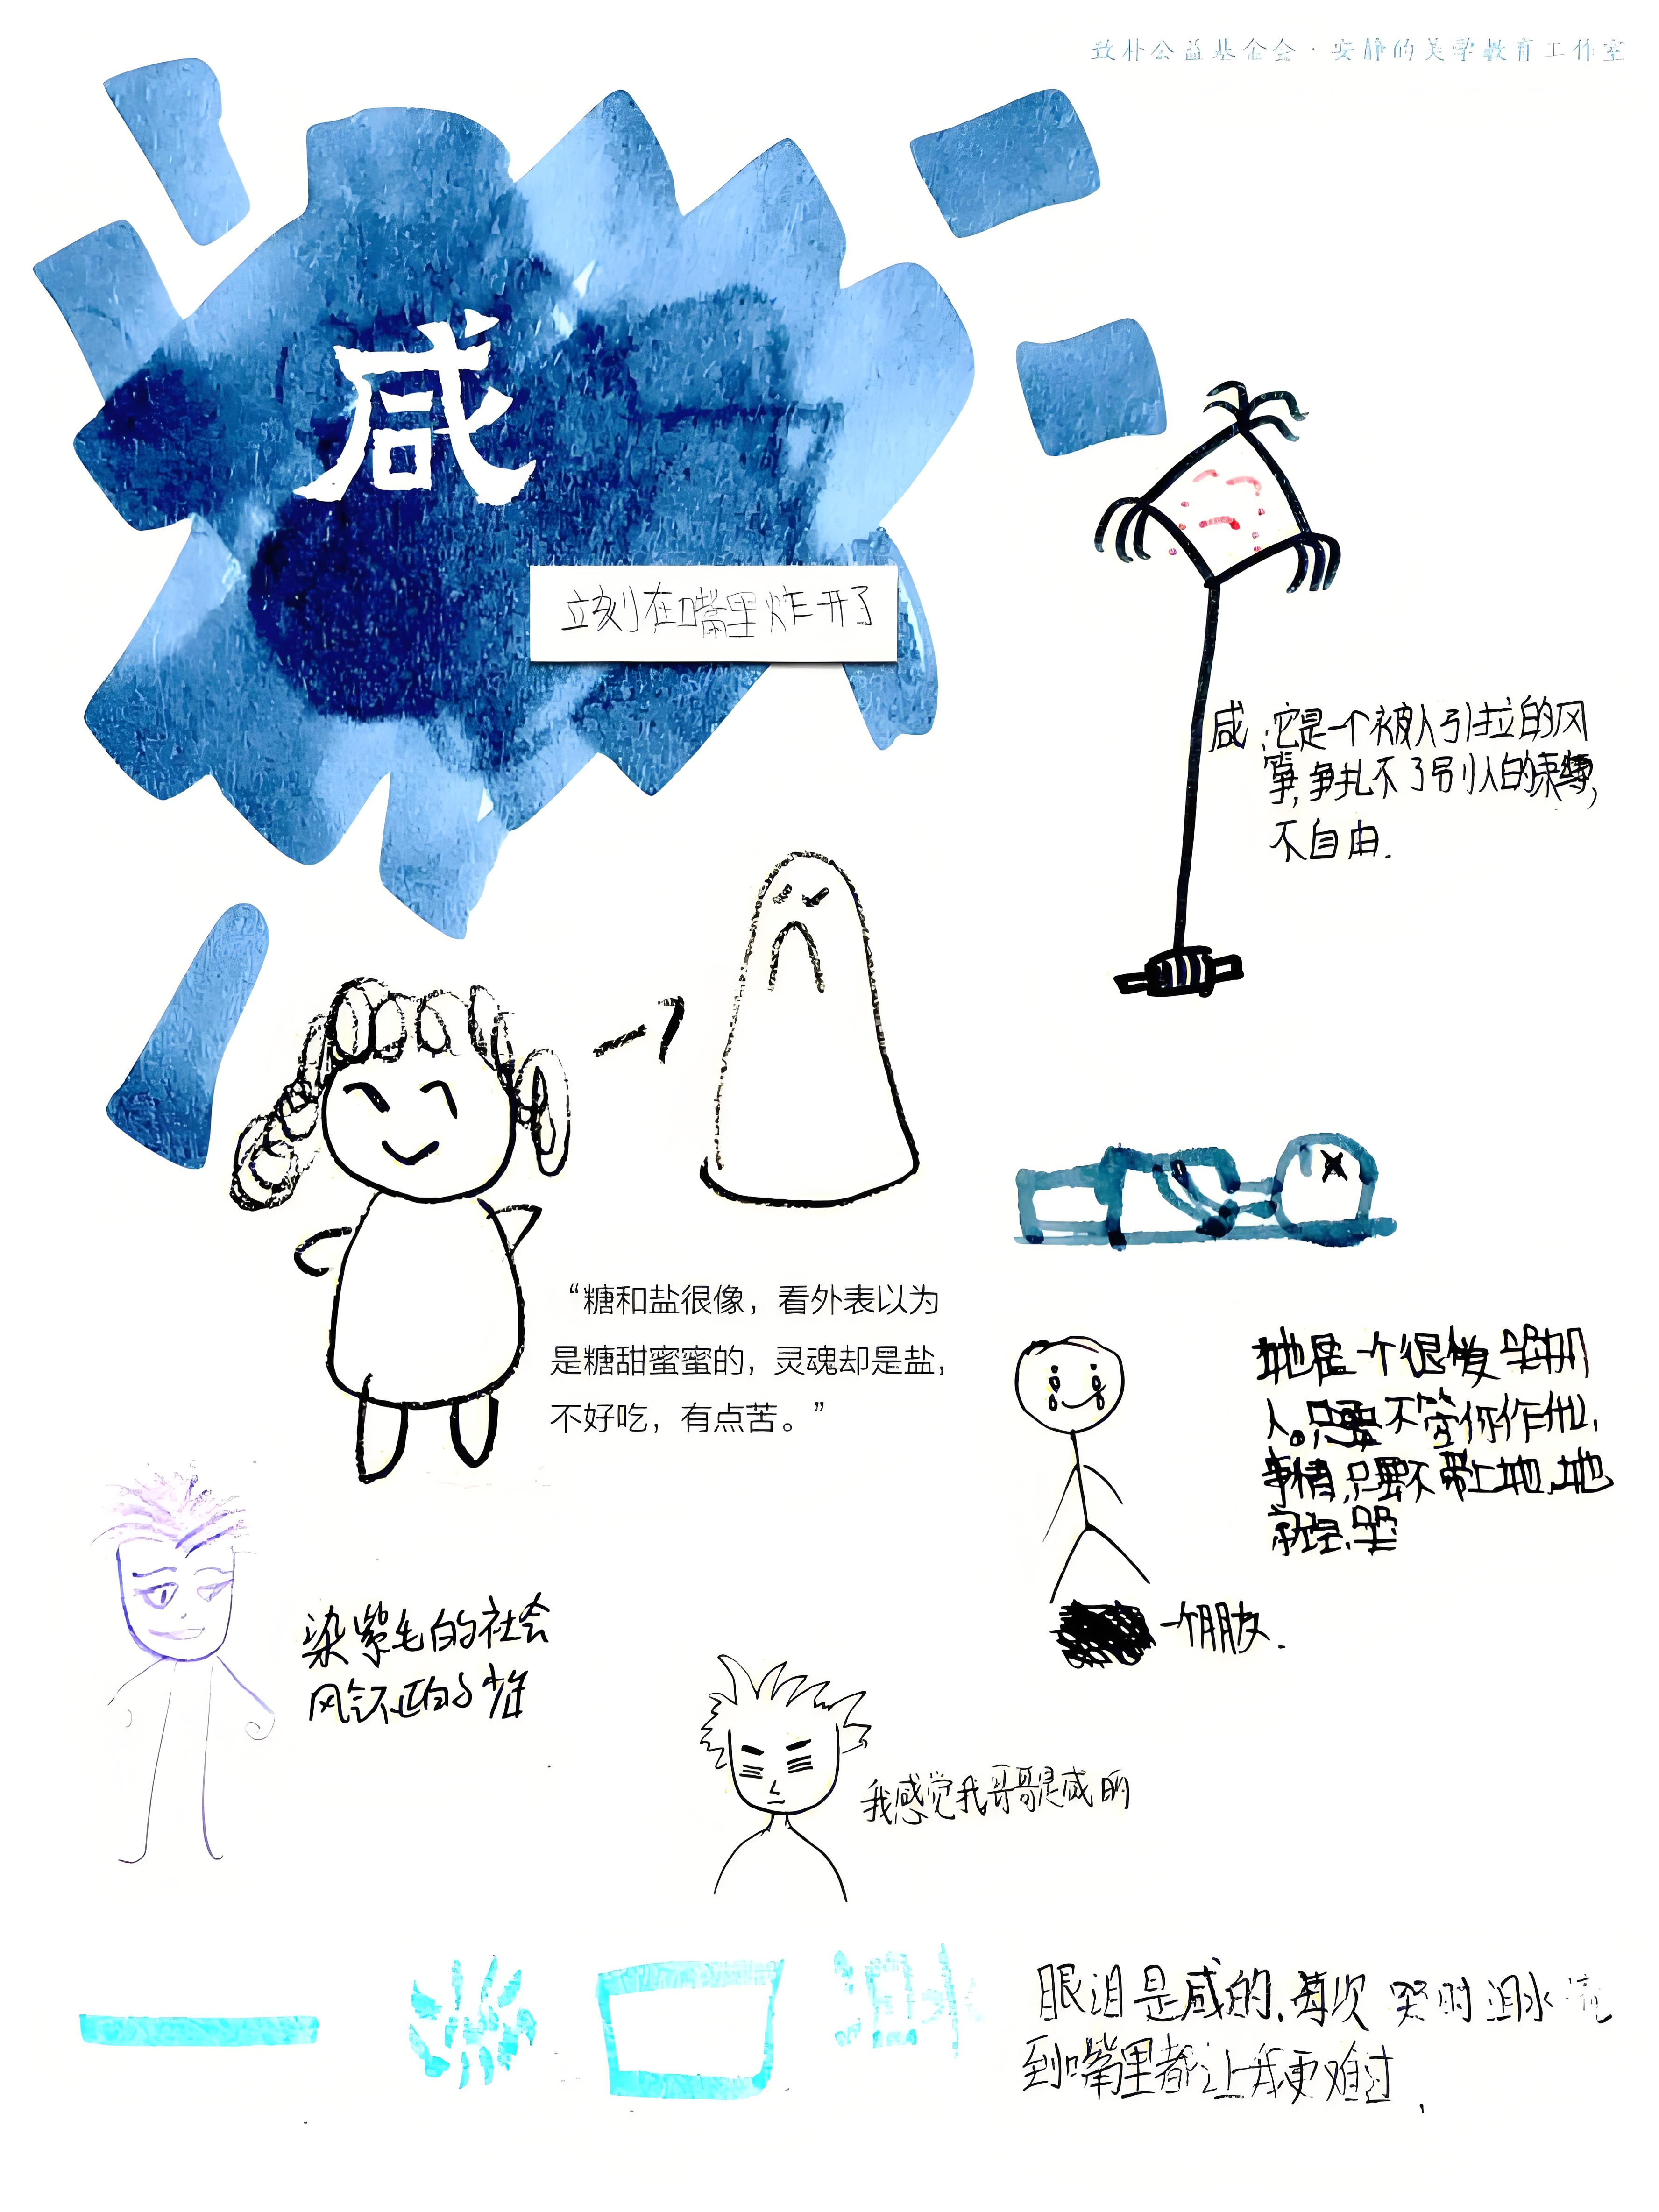 致朴公益基金会·安静的美学教育工作室
咸
立刻在嘴里炸开了
咸:它是一个被人引拉的风
筝,争扎不了别人的束缚,
不自由.
“糖和盐很像，看外表以为
是糖甜蜜蜜的，灵魂却是盐，
不好吃，有点苦。”
地是一个很爱哭的
人。不管你作什么
事情,只要不带上地,地
就会哭
一个朋友.
染紫毛的社会
风气不正的少年
我感觉我哥哥是咸的
泪水
眼泪是咸的.每次哭时泪水流
到嘴里都让我更难过.